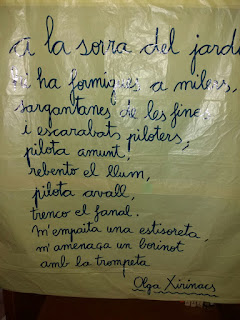 a la sorra del jardí
hi ha formigues a milers,
sargantanes de les fines
i escarabats piloters,
pilota amunt,
rebento el llum,
pilota avall,
trenco el fanal.
M'empaita una estisoreta,
m'amenaça un borinot
amb la trompeta
Olga Xirinacs